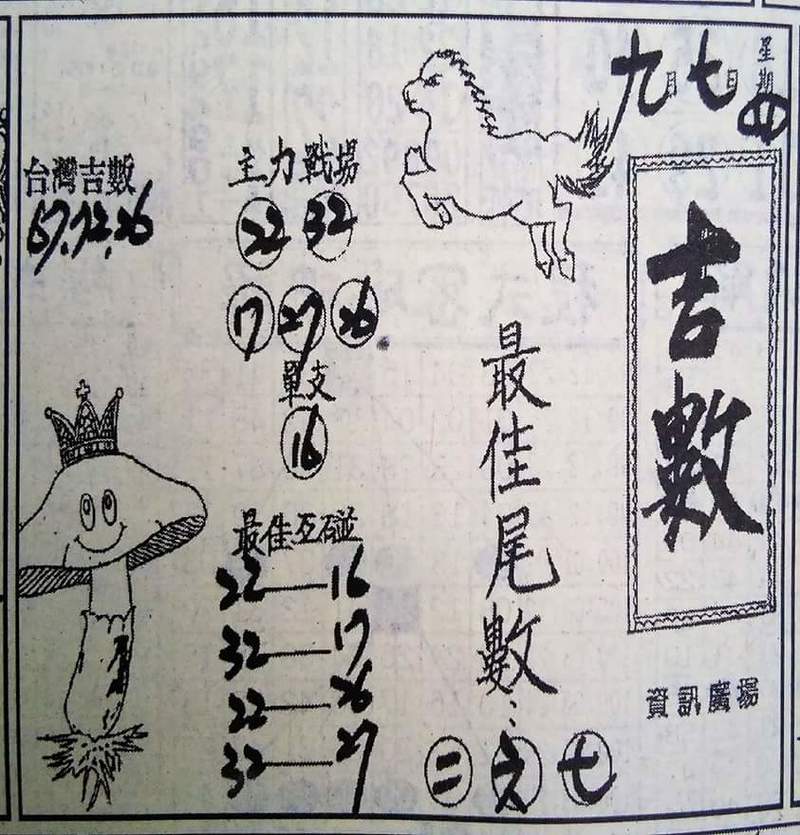 九月七日 星期四
吉數
資訊廣場
最佳尾數:
二 六 七
主力戰場
22 32
17 27 26
單支
16
最佳互碰
22——16
32——17
22——26
32——27
台灣吉數
67.72.26